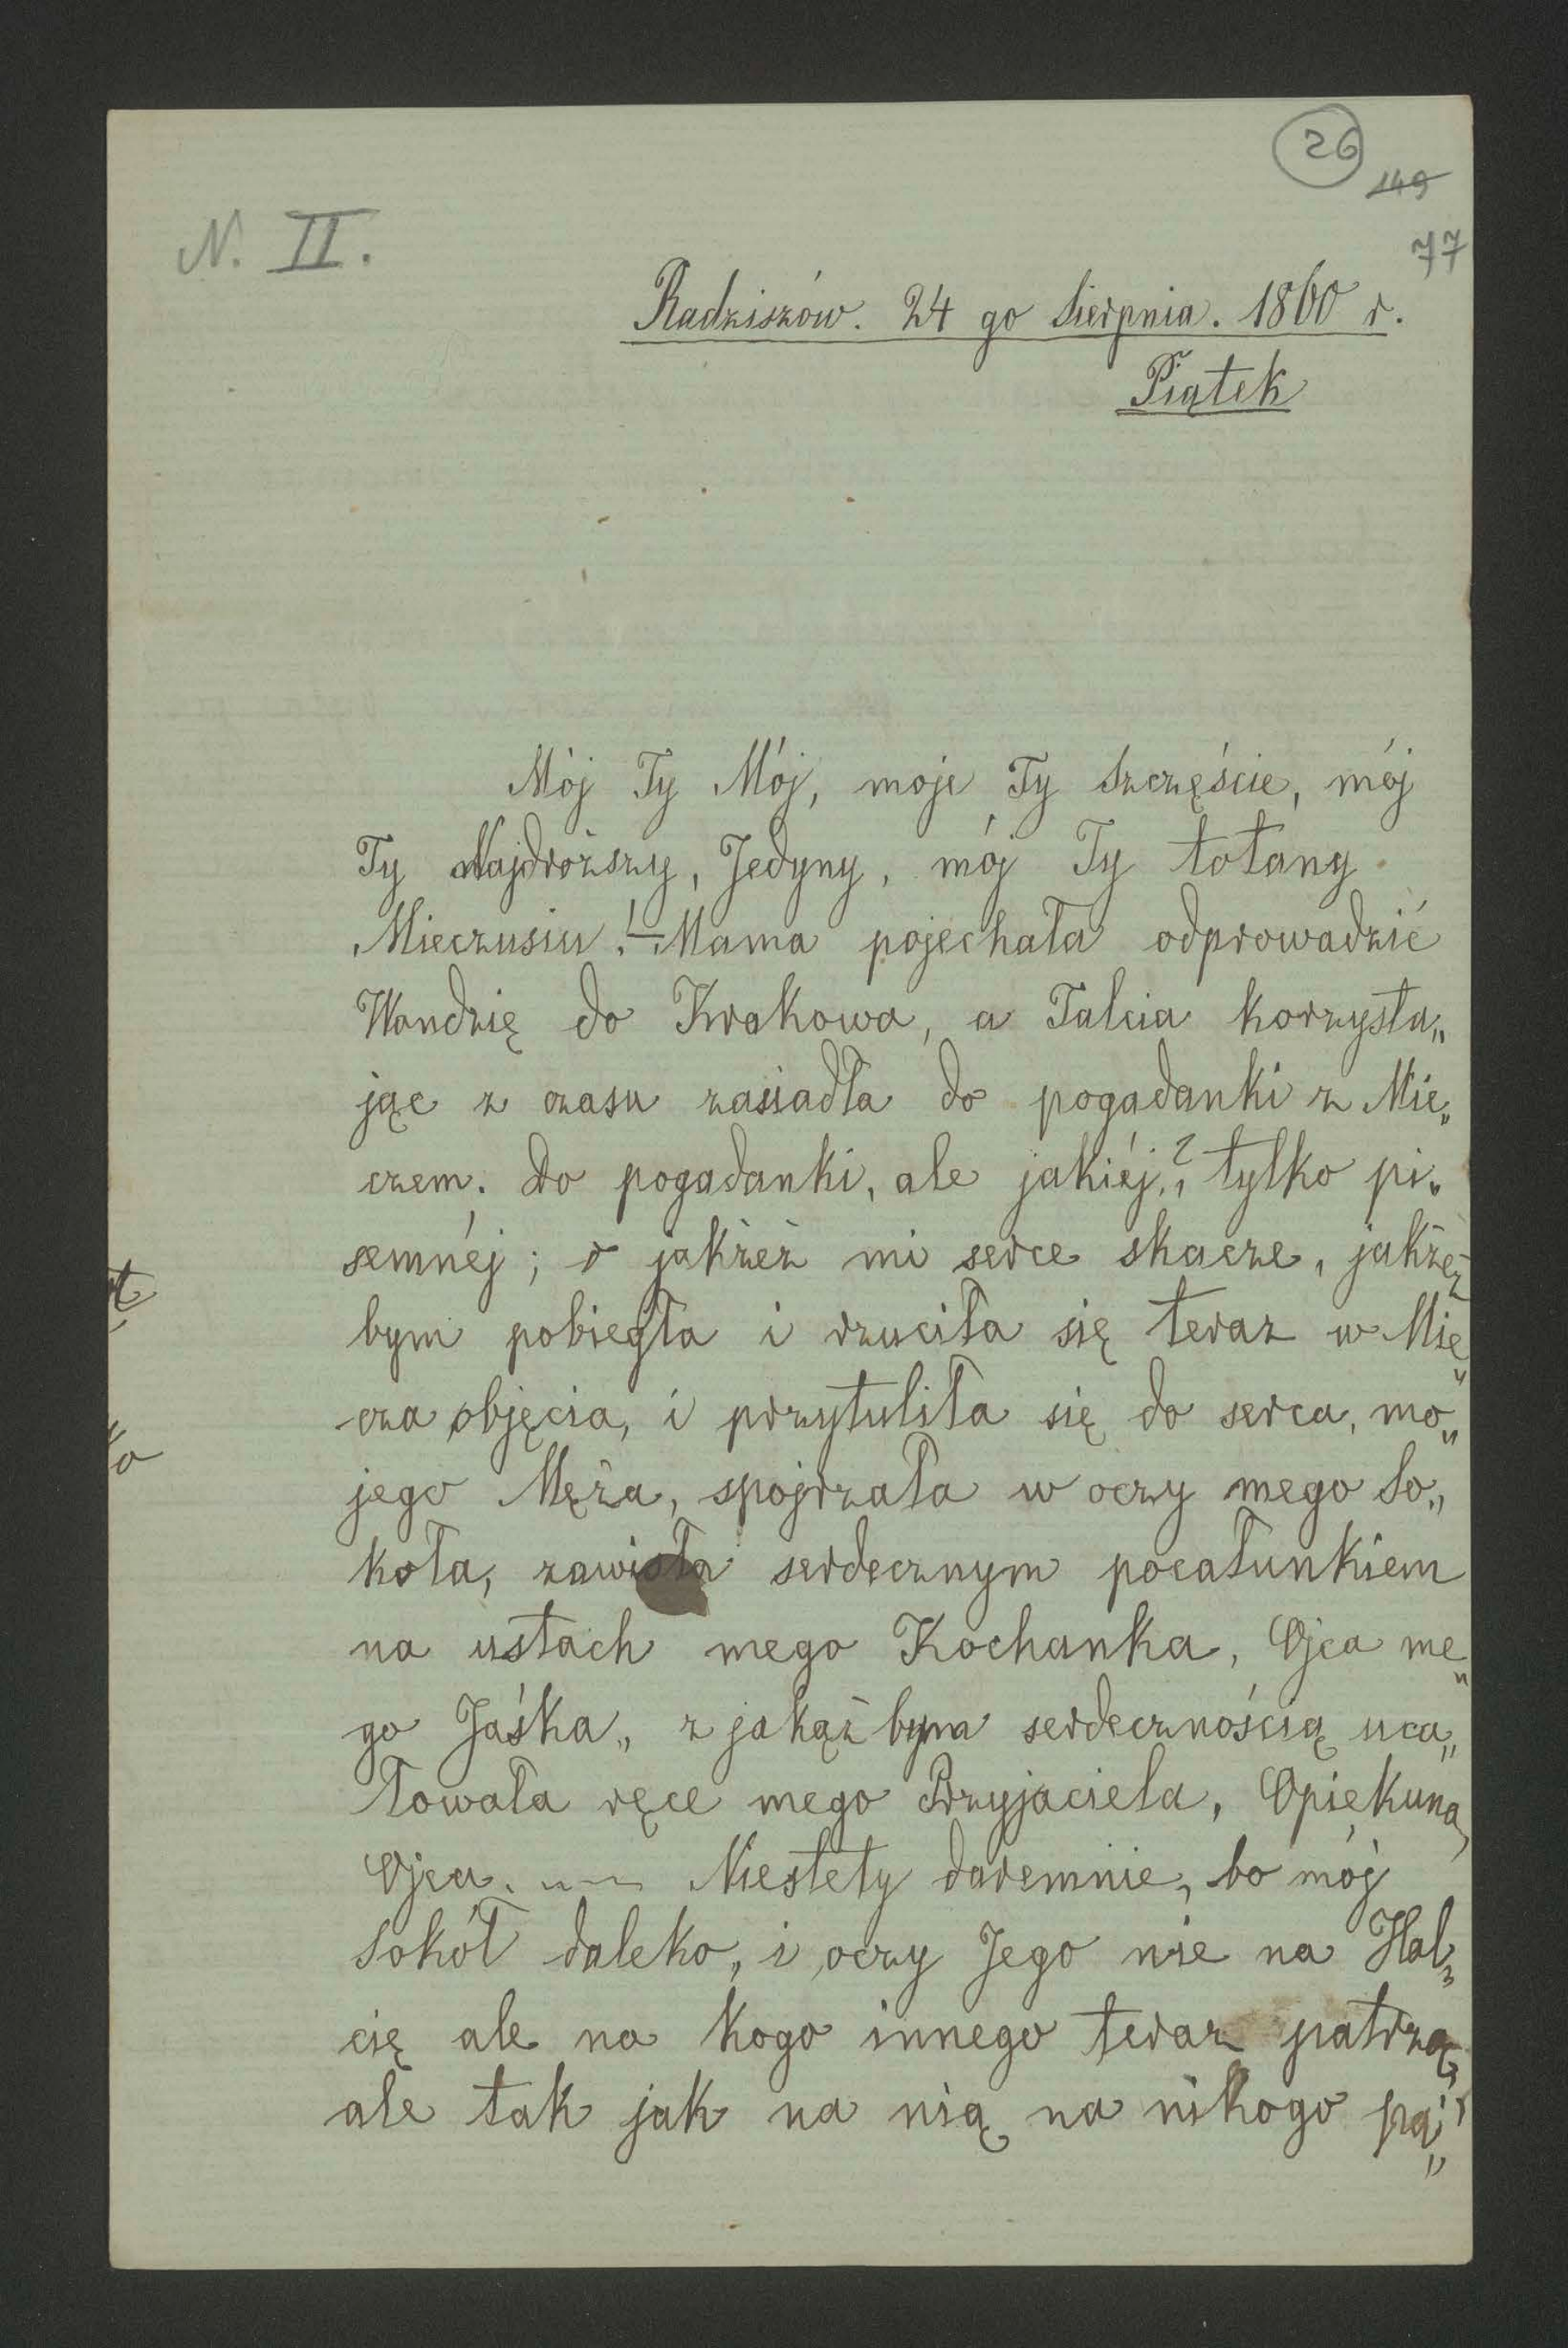 26
149
77
N. II.
Radziszów. 24 go Sierpnia. 1860 r.
Piątek
Mój Ty Mój, moje Ty Szczęście, mój
Ty Najdroższy, Jedyny, mój Ty łotany
Mieczusiu! — Mama pojechała odprowadzić
Wandzię do Krakowa, a Talcia korzysta„
jąc z czasu zasiadła do pogadanki z Mie„
czem. Do pogadanki, ale jakiéj?, tylko pi„
semnéj; o jakżeż mi serce skacze, jakżeż
bym pobiegła i rzuciła się teraz w Mie„
cza objęcia, i przytuliła się do serca, mo„
jego Męża, spojrzała w oczy mego So„
koła, zawisła serdecznym pocałunkiem
na ustach mego Kochanka, Ojca me„
go Jaśka„ z jakąż bym serdecznością uca„
łowała ręce mego Przyjaciela, Opiekuna,
Ojca. — Niestety daremnie, bo mój
Sokół daleko, i oczy Jego nie na Hal„
cię ale na kogo innego teraz patrzą,
ale tak jak na nią na nikogo pa„